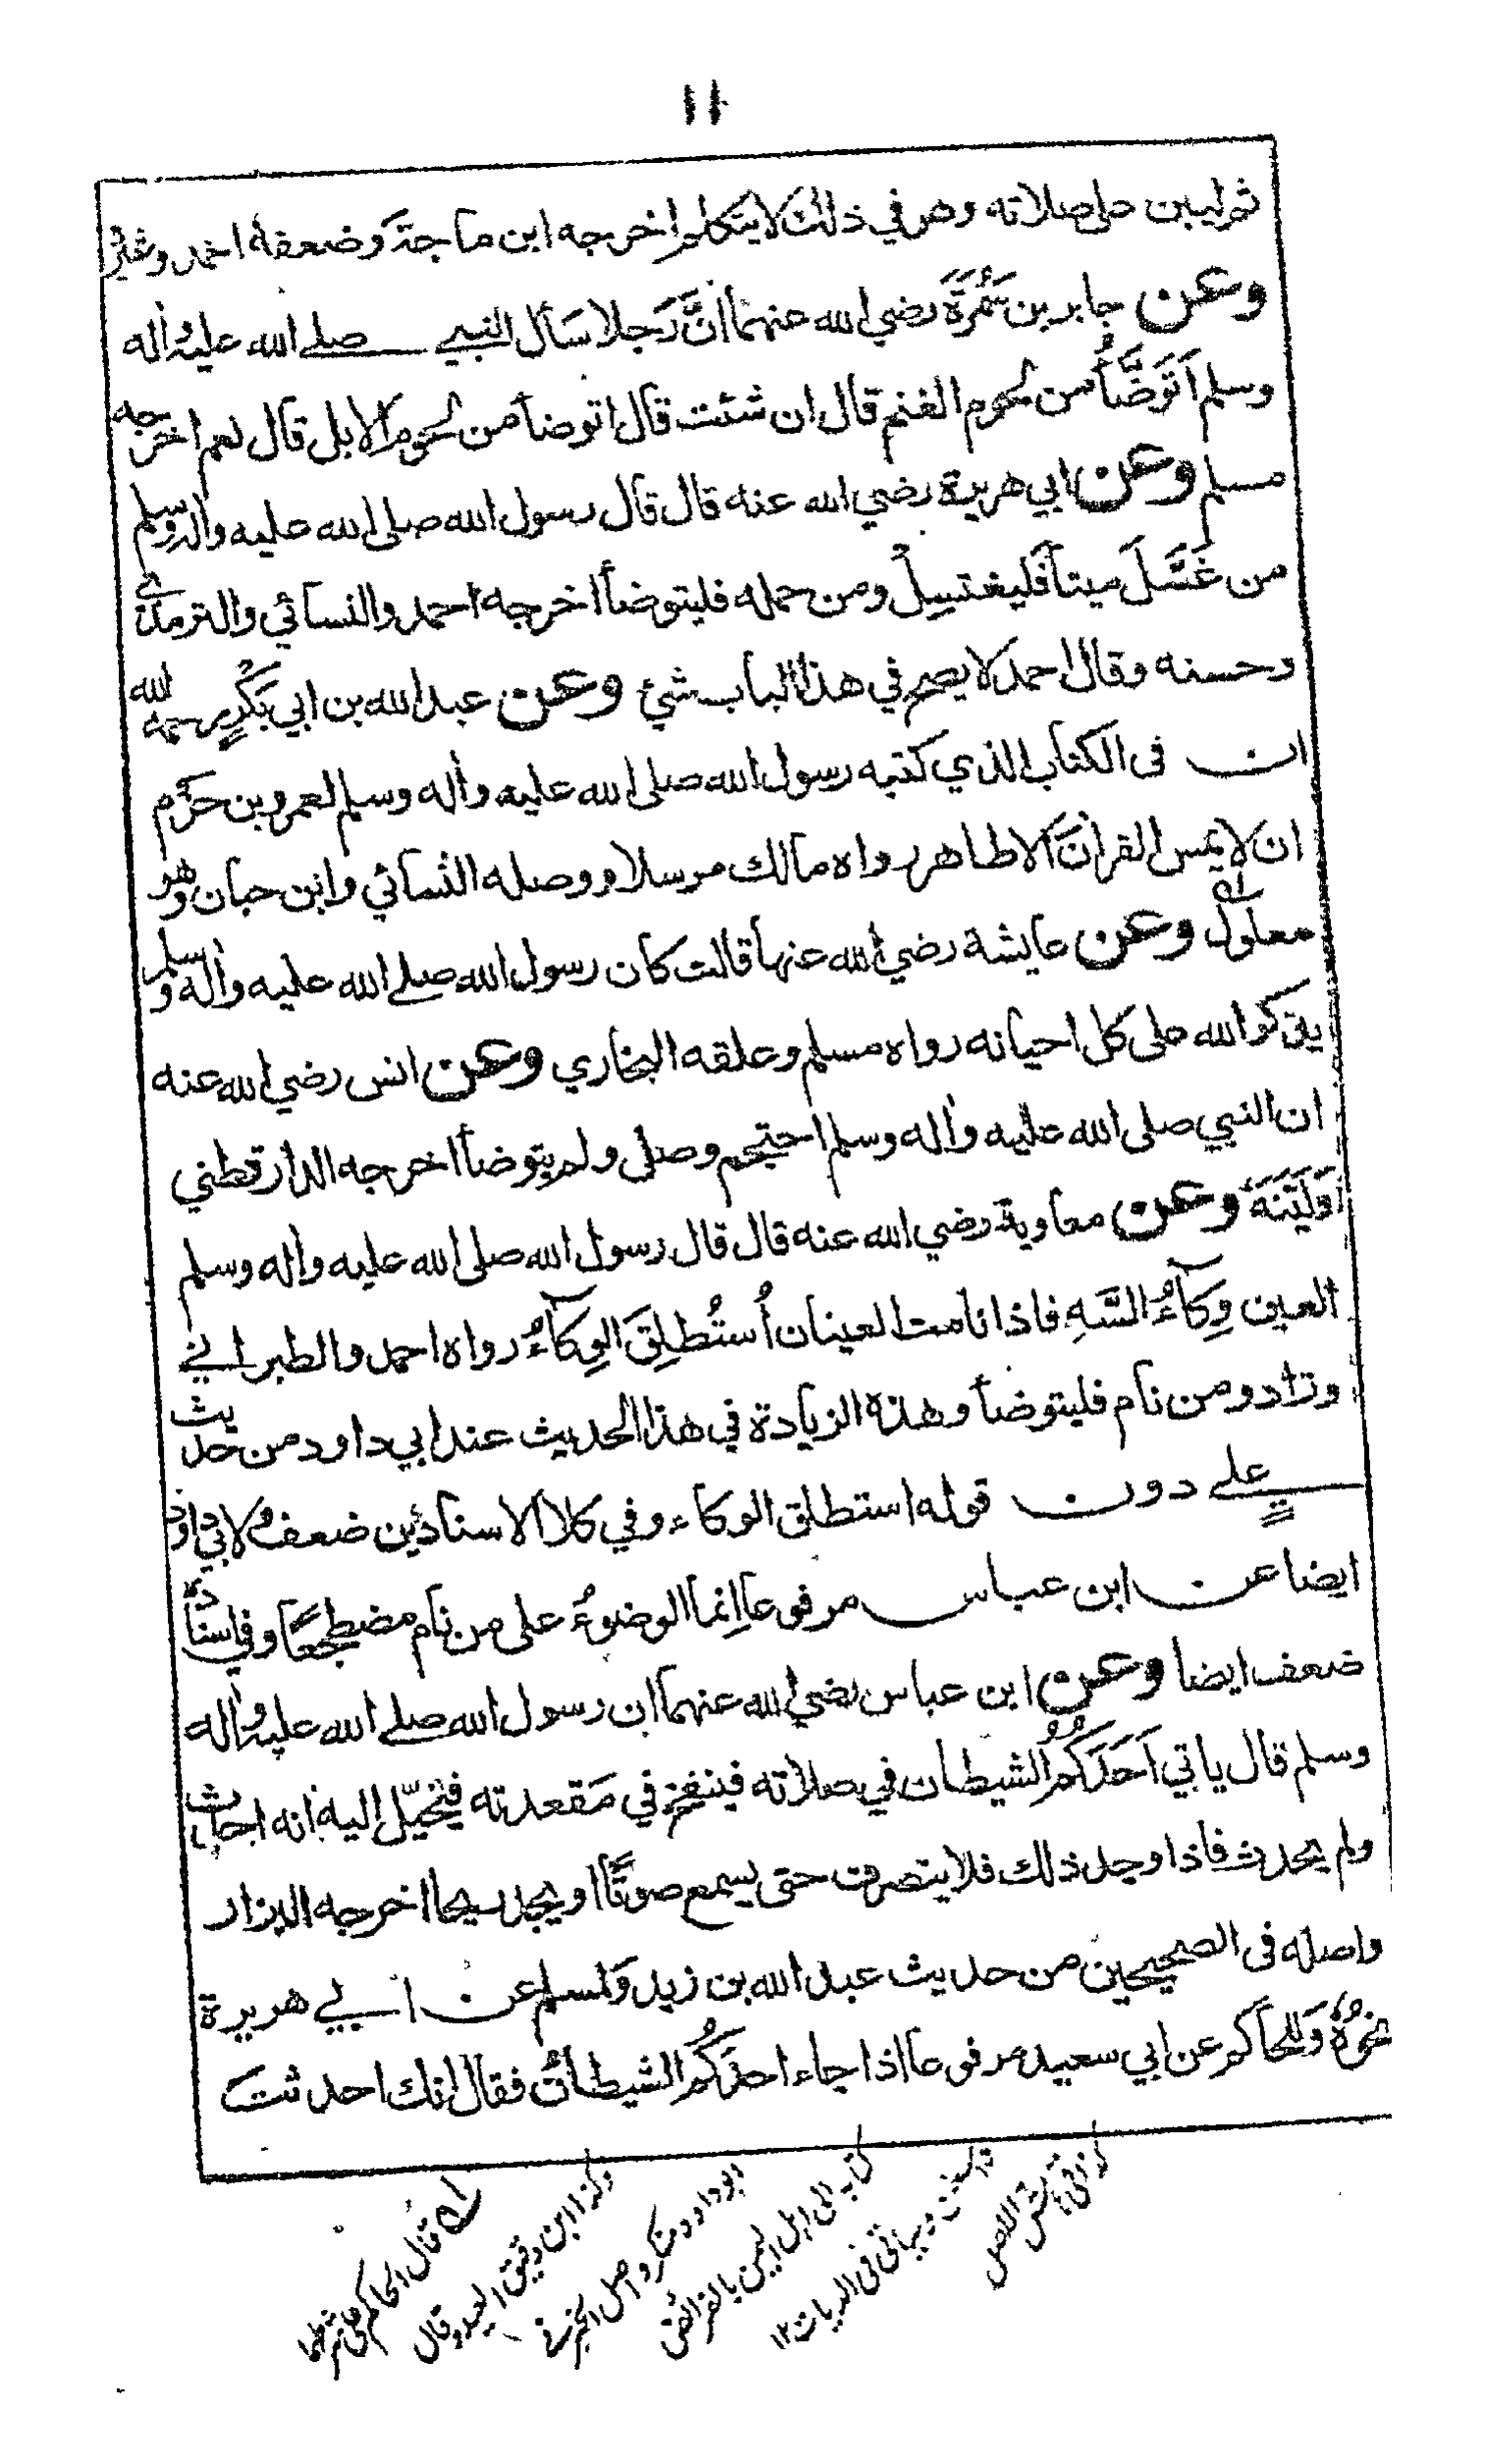 ١١
ثم ليبن على صلاته وهو في ذلك لا يتكلم اخرجه ابن ماجة وضعفه احمد وغيره
وعن جابر بن سَمُرَةَ رضي الله عنهما انَّ رَجلا سَأل النبي صلى الله عليه وآله
وسلم اَتَوَضَّأُ من لحوم الغنم قال ان شئت قال اتوضأ من لحوم الابل قال نعم اخرجه
مسلم وعن ابي هريرة رضي الله عنه قال قال رسول الله صلى الله عليه وآله وسلم
من غَسَّلَ ميتاً فَليغتسِلْ ومن حمله فليتوضأ اخرجه احمد والنسائي والترمذي
وحسنه وقال احمد لا يصح في هذا الباب شئ وعن عبد الله بن ابي بَكْرٍ رحمه الله
ان فى الكتاب الذي كتبه رسول الله صلى الله عليه وآله وسلم لعمرو بن حَزم
ان لا يمس القرآنَ الا طاهر رواه مالك مرسلا ووصله النسائي وابن حبان وهو
معلول وعن عايشة رضي الله عنها قالت كان رسول الله صلى الله عليه وآله وسلم
يذكر الله على كل احيانه رواه مسلم وعلقه البخاري وعن انس رضي الله عنه
ان النبي صلى الله عليه وآله وسلم احتجم وصلى ولم يتوضأ اخرجه الدارقطني
وَلَيَّنَهَ وعن معاوية رضي الله عنه قال قال رسول الله صلى الله عليه وآله وسلم
العين وِكَآءُ السَّهِ فاذا نامت العينان اُستُطلِقَ الوِكَآءُ رواه احمد والطبراني
وزاد ومن نام فليتوضأ وهذه الزيادة في هذا الحديث عند ابي داود من حديث
عليٍ دون قوله استطلق الوكاء وفي كلا الاسنادين ضعف ولابي داود
ايضا عن ابن عباس مرفوعا اِنما الوضوءُ على من نام مضطجعًا وفي اسناده
ضعف ايضا وعن ابن عباس رضي الله عنهما ان رسول الله صلى الله عليه وآله
وسلم قال ياتي اَحَدَكُمُ الشيطان في صلاته فينفخ في مَقعدته فيُخَيّل اليه انه احدث
ولم يحدث فاذا وجد ذلك فلا ينصرف حتى يسمع صوتًا او يجد ريحا اخرجه البزار
واصله فى الصحيحين من حديث عبد الله بن زيد وَلمسلم عن ابي هريرة
نحوُهُ وَللحاكم عن ابي سعيد مرفوعا اذا جاء احدَكُمُ الشيطانُ فقال انك احدثتَ
له قال الحاكم على شرطهما
وكذا ابن دقيق العيد وقال
ابو داود منكر واصل الخبر في
كتابه الى اهل اليمن بالفرائض
والسنن وياتي في الديات ١٢